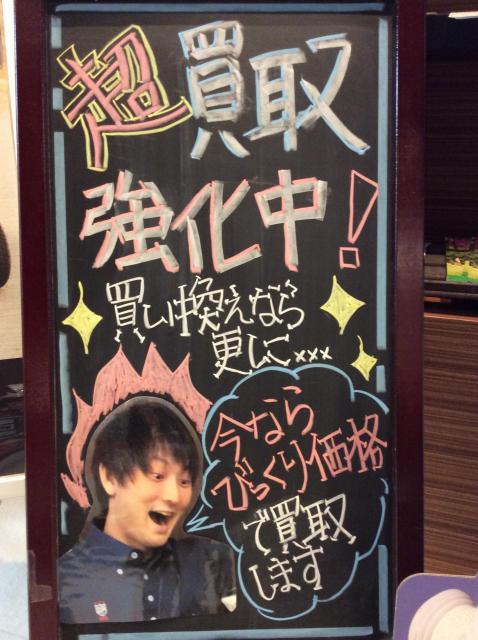 超買取
強化中!
買い換えなら
更に...
今なら
びっくり価格
で買取
します